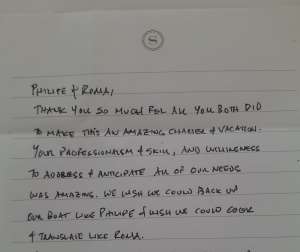 S
PHILIPE & ROMA,
THANK YOU SO MUCH FOR ALL YOU BOTH DID
TO MAKE THIS AN AMAZING CHARTER & VACATION.
YOUR PROFESSIONALISM & SKILL, AND WILLINGNESS
TO ADDRESS & ANTICIPATE ALL OF OUR NEEDS
WAS AMAZING. WE WISH WE COULD BACK UP
OUR BOAT LIKE PHILIPE & WISH WE COULD COOK
& TRANSLATE LIKE ROMA.